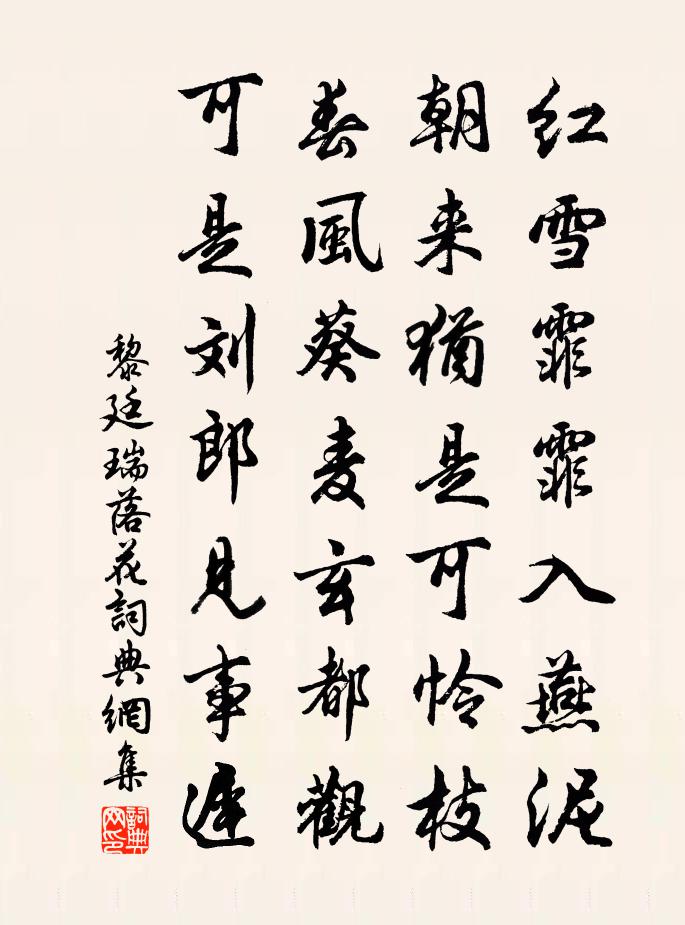 红雪霏霏入燕泥
朝来犹是可怜枝
春風葵麦玄都觀
可是刘郎見事遲
黎廷瑞落花詞典網集
詞典网印